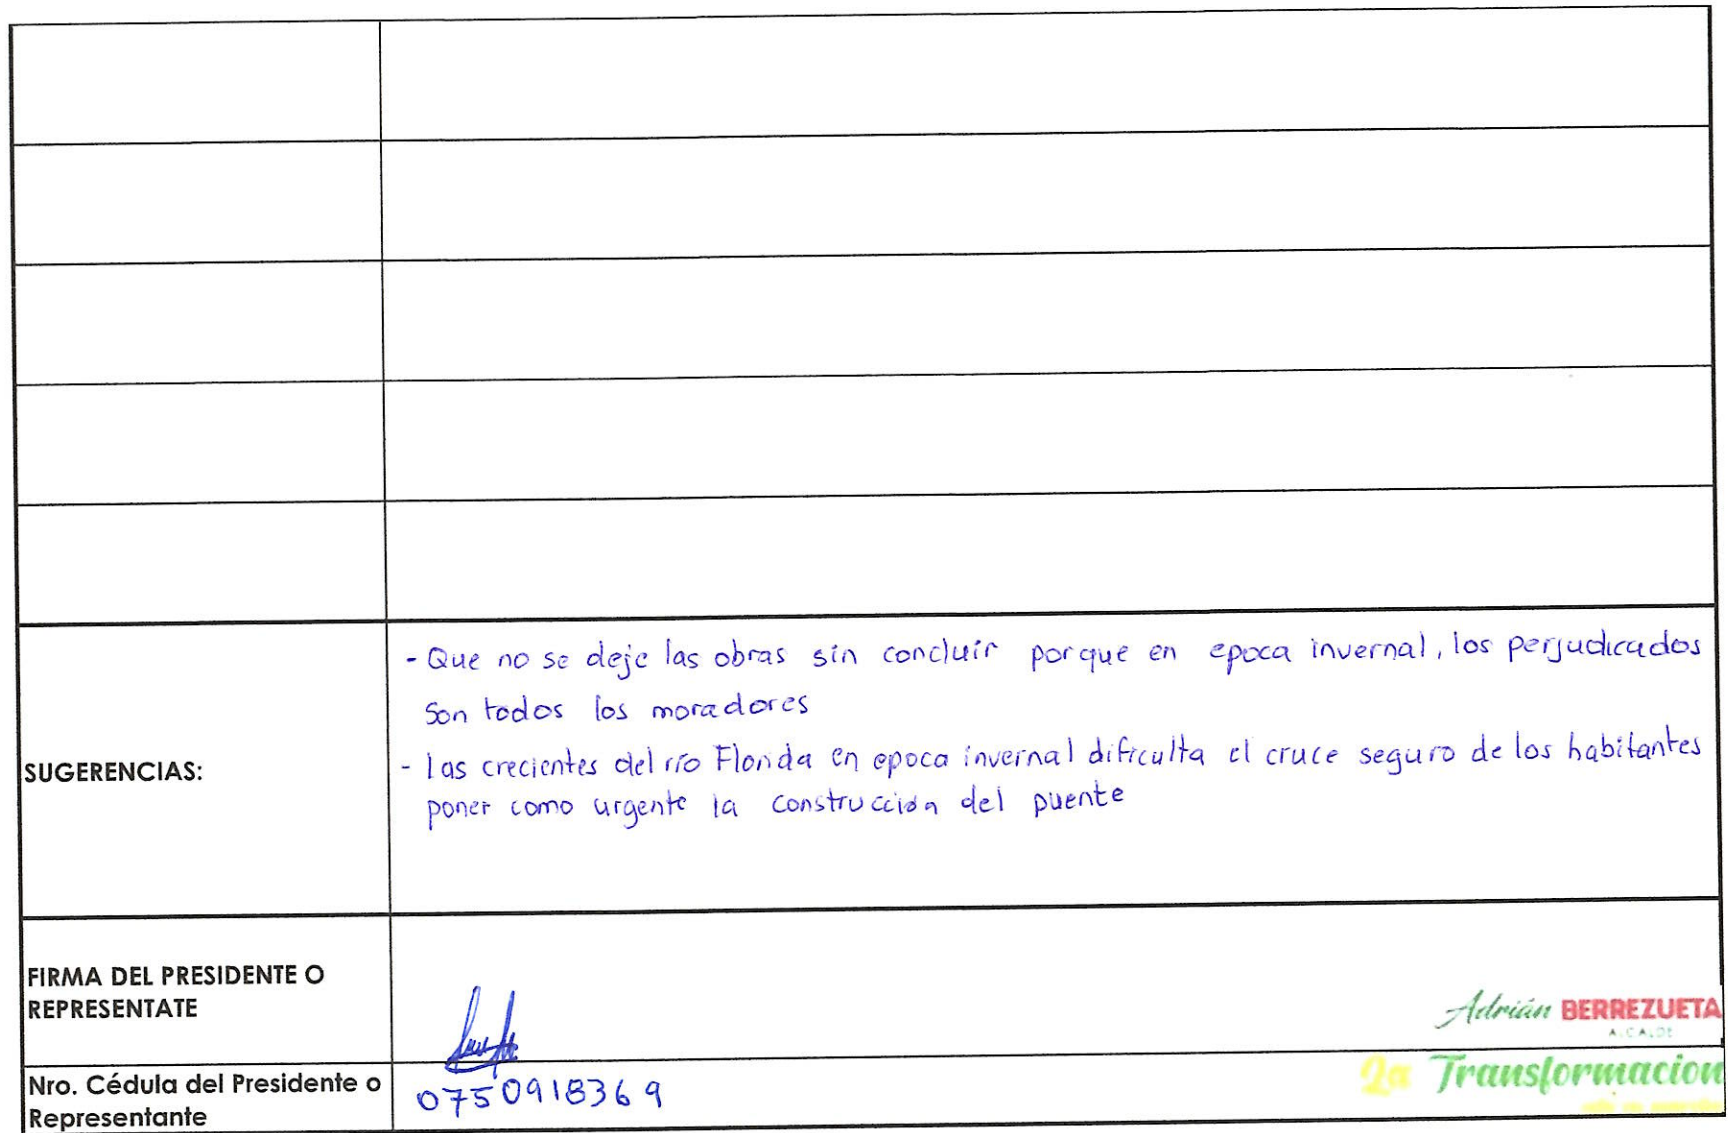 - Que no se deje las obras sin concluir porque en epoca invernal, los perjudicados
son todos los moradores
SUGERENCIAS:
- las crecientes del río Florida en epoca invernal dificulta el cruce seguro de los habitantes
poner como urgente la construcción del puente
FIRMA DEL PRESIDENTE O
REPRESENTATE
Adrián BERREZUETA
ALCALDE
La Transformacion
Nro. Cédula del Presidente o
Representante
0750918369